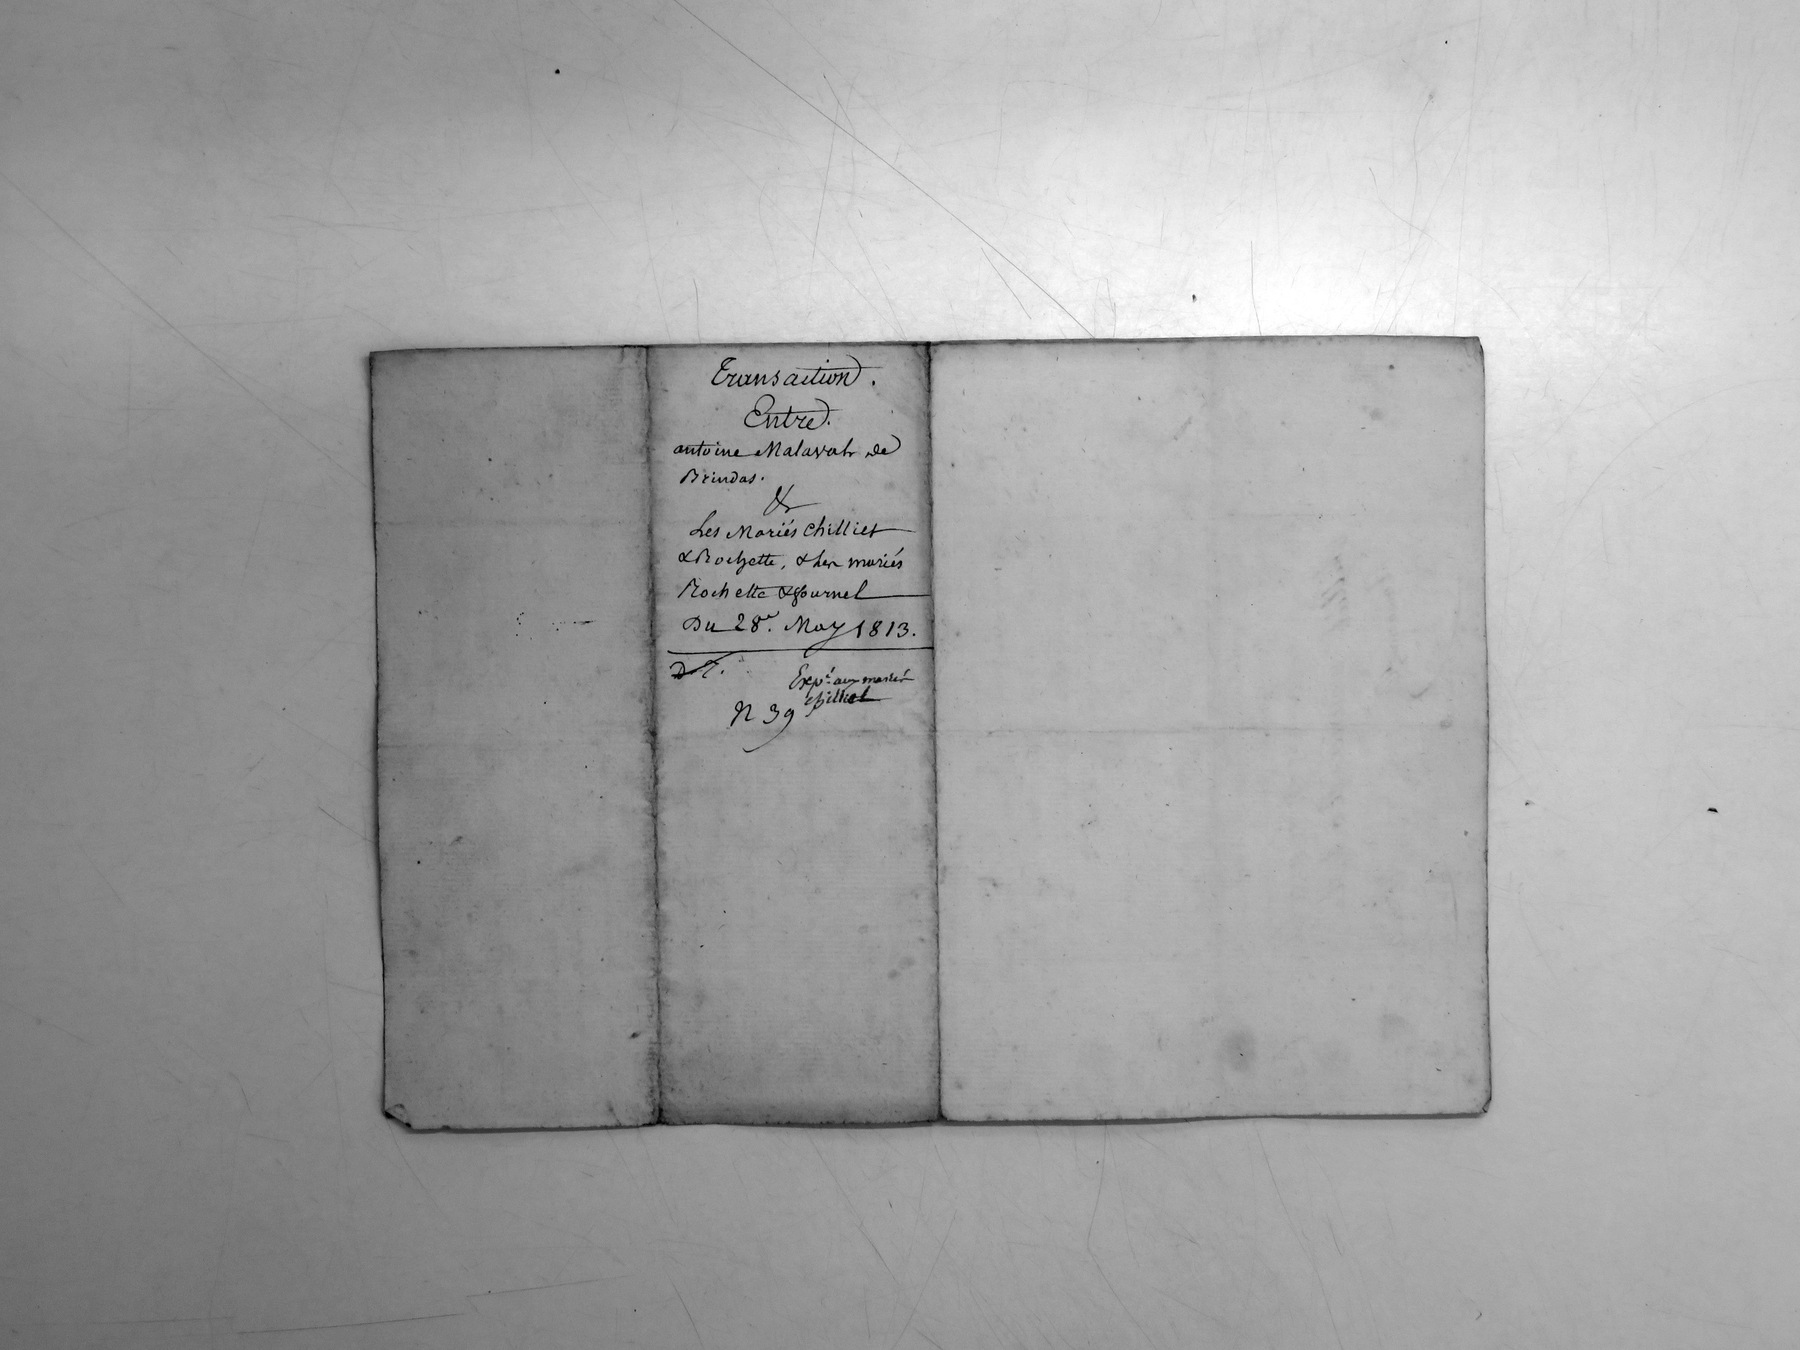 Transaction.
Entre.
antoine Malaval de
Brindas.
&
Les Mariés Chilliet
& Rochette, & les mariés
Rochette & fournel
Du 28e. May 1813.
D T.
Expé. aux mariés
chilliet
N 39